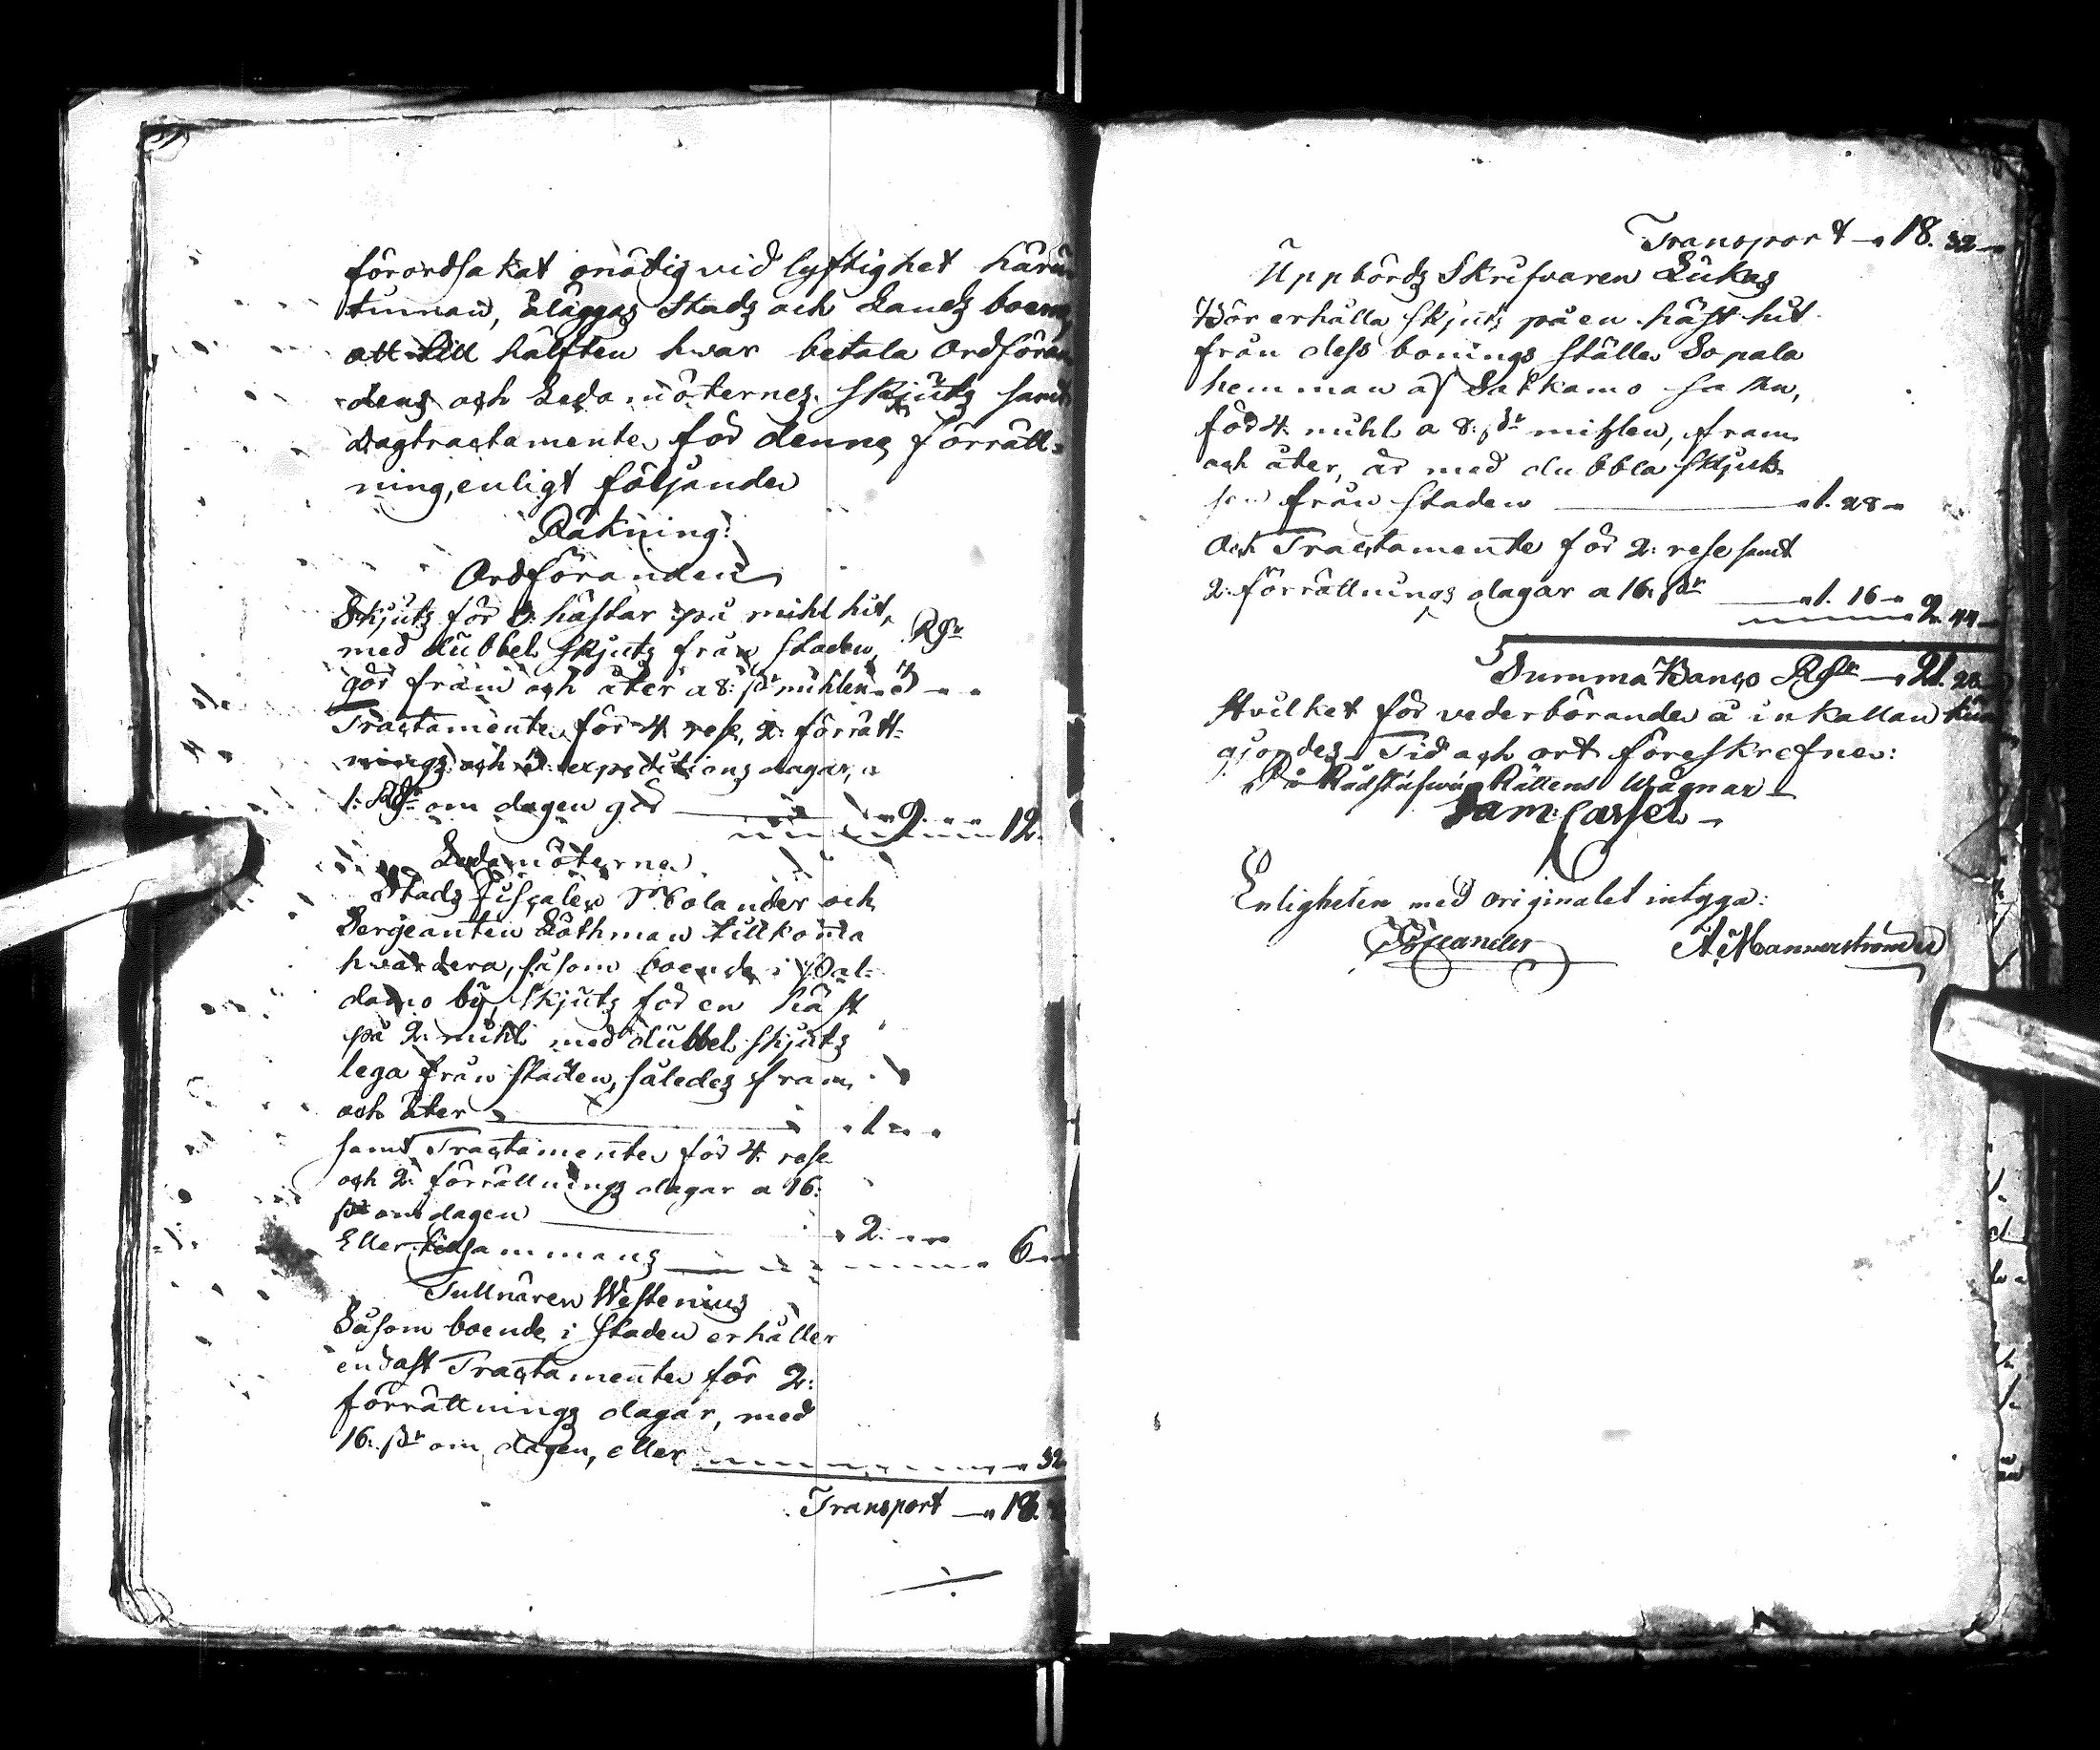 förordsakat onödig vidlyftighet härut
tinnan, åläggas Stads och Lands boerne,
att till hälften hwar betala Ordföran
dens och Ledamöternes Skjuts samt
Dagtractamente för denna förrätt-
ning, enligt följande
Räkning:
Ordföranden
Skjuts för 3: hästar på mihl hit,
med dubbel Skjuts från staden, Rdr
gör fram och åter a 8: sr mihlen 3
Tractamente för 4 rese, 2: förrätt-
nings och expeditions dagar, a
1: Rdr om dagen gör 9 12.
Ledamöterne
Stads Fiscalen Molander och
Sergeanten Lothman tillkoma
hwardera, såsom boende i
damo by, Skjuts för en häst
på 2: mihl med dubbel skjuts
lega från Staden, således fram
och åter 1
samt Tractamente för 4: rese
och 2: förrättnings dagar a 16:
sr om dagen 2.
Eller tillsammans 6
Tullnären Westenius
Såsom boende i Staden erhåller
endast Tractamente för 2:
förrättnings dagar, med
16: sr om dagen, eller 32
Transport 18.
Transport 18. 32
Uppbörds Skrifvaren Lukas
Bör erhålla skjuts på en häst hit
från dess bonings ställe Sopala
hemman af Satkamo
för 4: mihl a 8: sr mihlen, fram
och åter, är med dubbla skjuts
från staden 1. 28
Och Tractamente för 2: rese samt
2: förrättnings dagar a 16: sr 1. 16
2. 44
Summa Banco Rdr 21. 28
Hvilket för vederbörande å inkallan kun
gjordes. Tid och ort föreskrefne:
På Rådstufwu Rättens Wägnar
Sam: Carsel
Enligheten med originalet intyga:
A. Mannerström